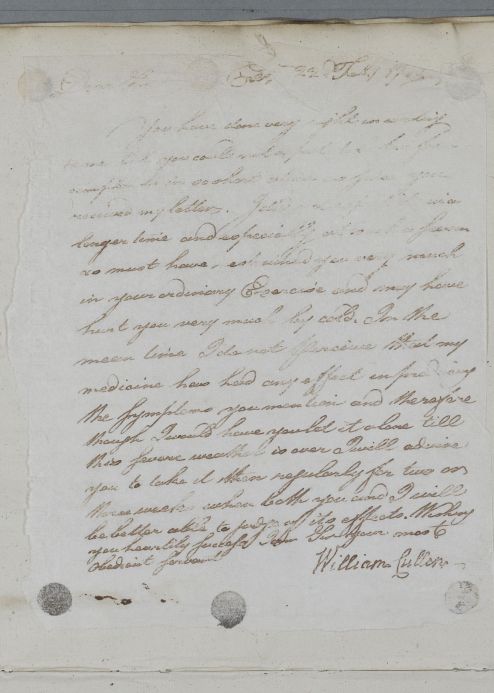 Dear Sir Edr 22 Feby
You have done very right in writing
to me but you could not
in so short a time since you
received my letters.
longer time and especially at such a season
as must have you very much
in your ordinary Exercise and may have
hurt you very much by cold. In the
mean time I do not perceive that my
medicine has had any effect in producing
the symptoms you mention and therefore
though I would have you let it alone till
this severe weather is over I will advise
you to take it then regularly for two or
three weeks when both you and I will
be better able to judge of its effects. Wishing
you heartily success I am Sir your most
obedient servant
William Cullen